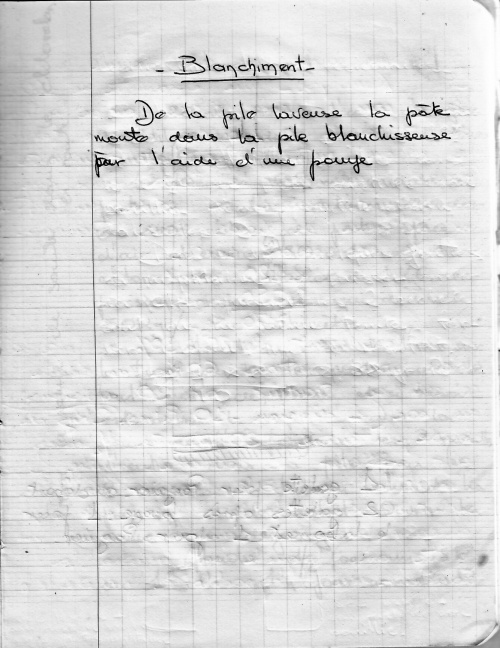 - Blanchiment -
De la pile laveuse la pâte
monte dans la pile blanchisseuse
par l'aide d'une pompe